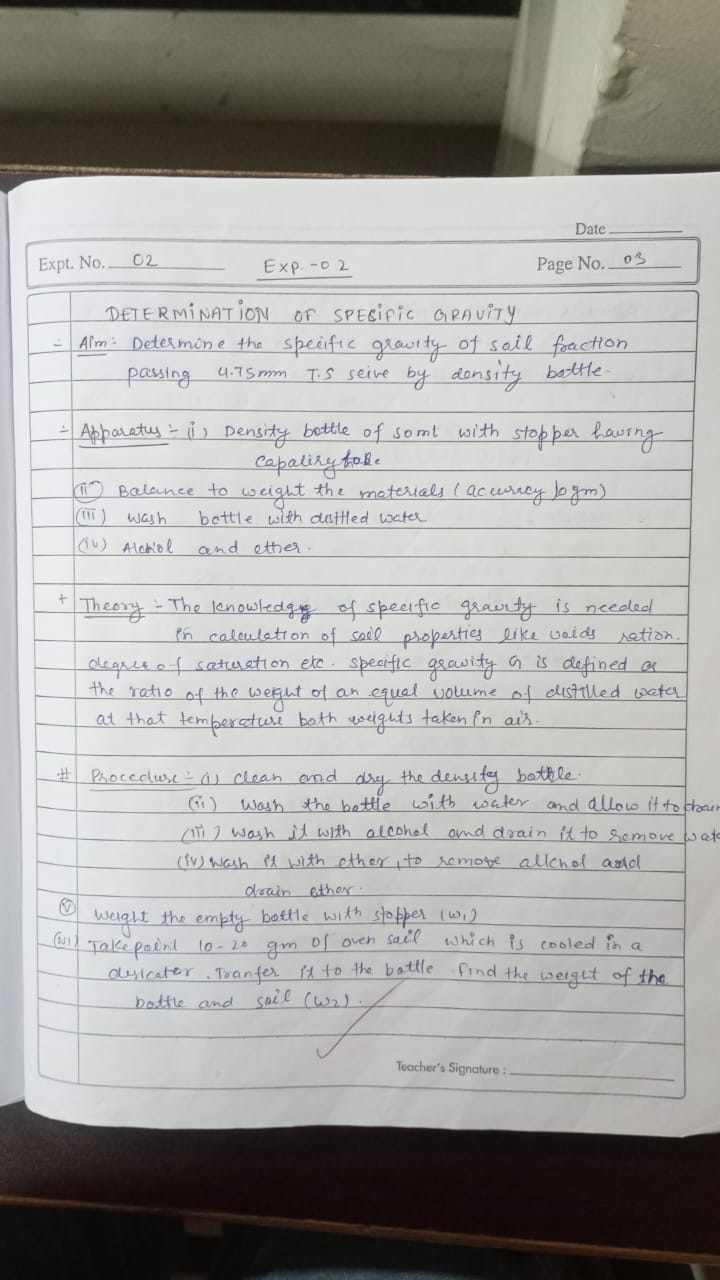 Date
Expt. No. 02 Exp.-02 Page No. 03
DETERMINATION OF SPECIFIC GRAVITY
Aim: Determine the specific gravity of sail fraction
passing 4.75mm I.S seive by density bottle.
Apparatus :- (i) Density bottle of 50ml with stopper having
(ii) Balance to weight the materials (accuracy 10gm)
(iii) wash bottle with distlled water
(iv) Alchiol and ether.
+ Theory :- The knowledge of specific gravity is needed
in calculation of soil properties like voids ration.
degree of saturation etc. specific gravity G is defined as
the ratio of the weight of an equal volume of distilled water
at that temperature both weights taken in air.
# Procedure :- (i) clean and dry the density bottle.
(ii) Wash the bottle with water and allow it to drain
(iii) Wash it with alcohol and drain it to remove wate
(iv) Wash it with ether, to remove allchol and
drain ether.
(v) Weight the empty bottle with stopper (W1)
(vi) Take point 10-20 gm of oven sail which is cooled in a
desicater. Tranfer it to the bottle. find the weigut of the
bottle and sail (W2).
Teacher's Signature :